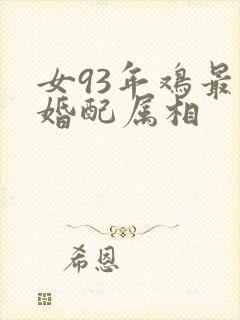 女93年鸡最
婚配属相
希恩